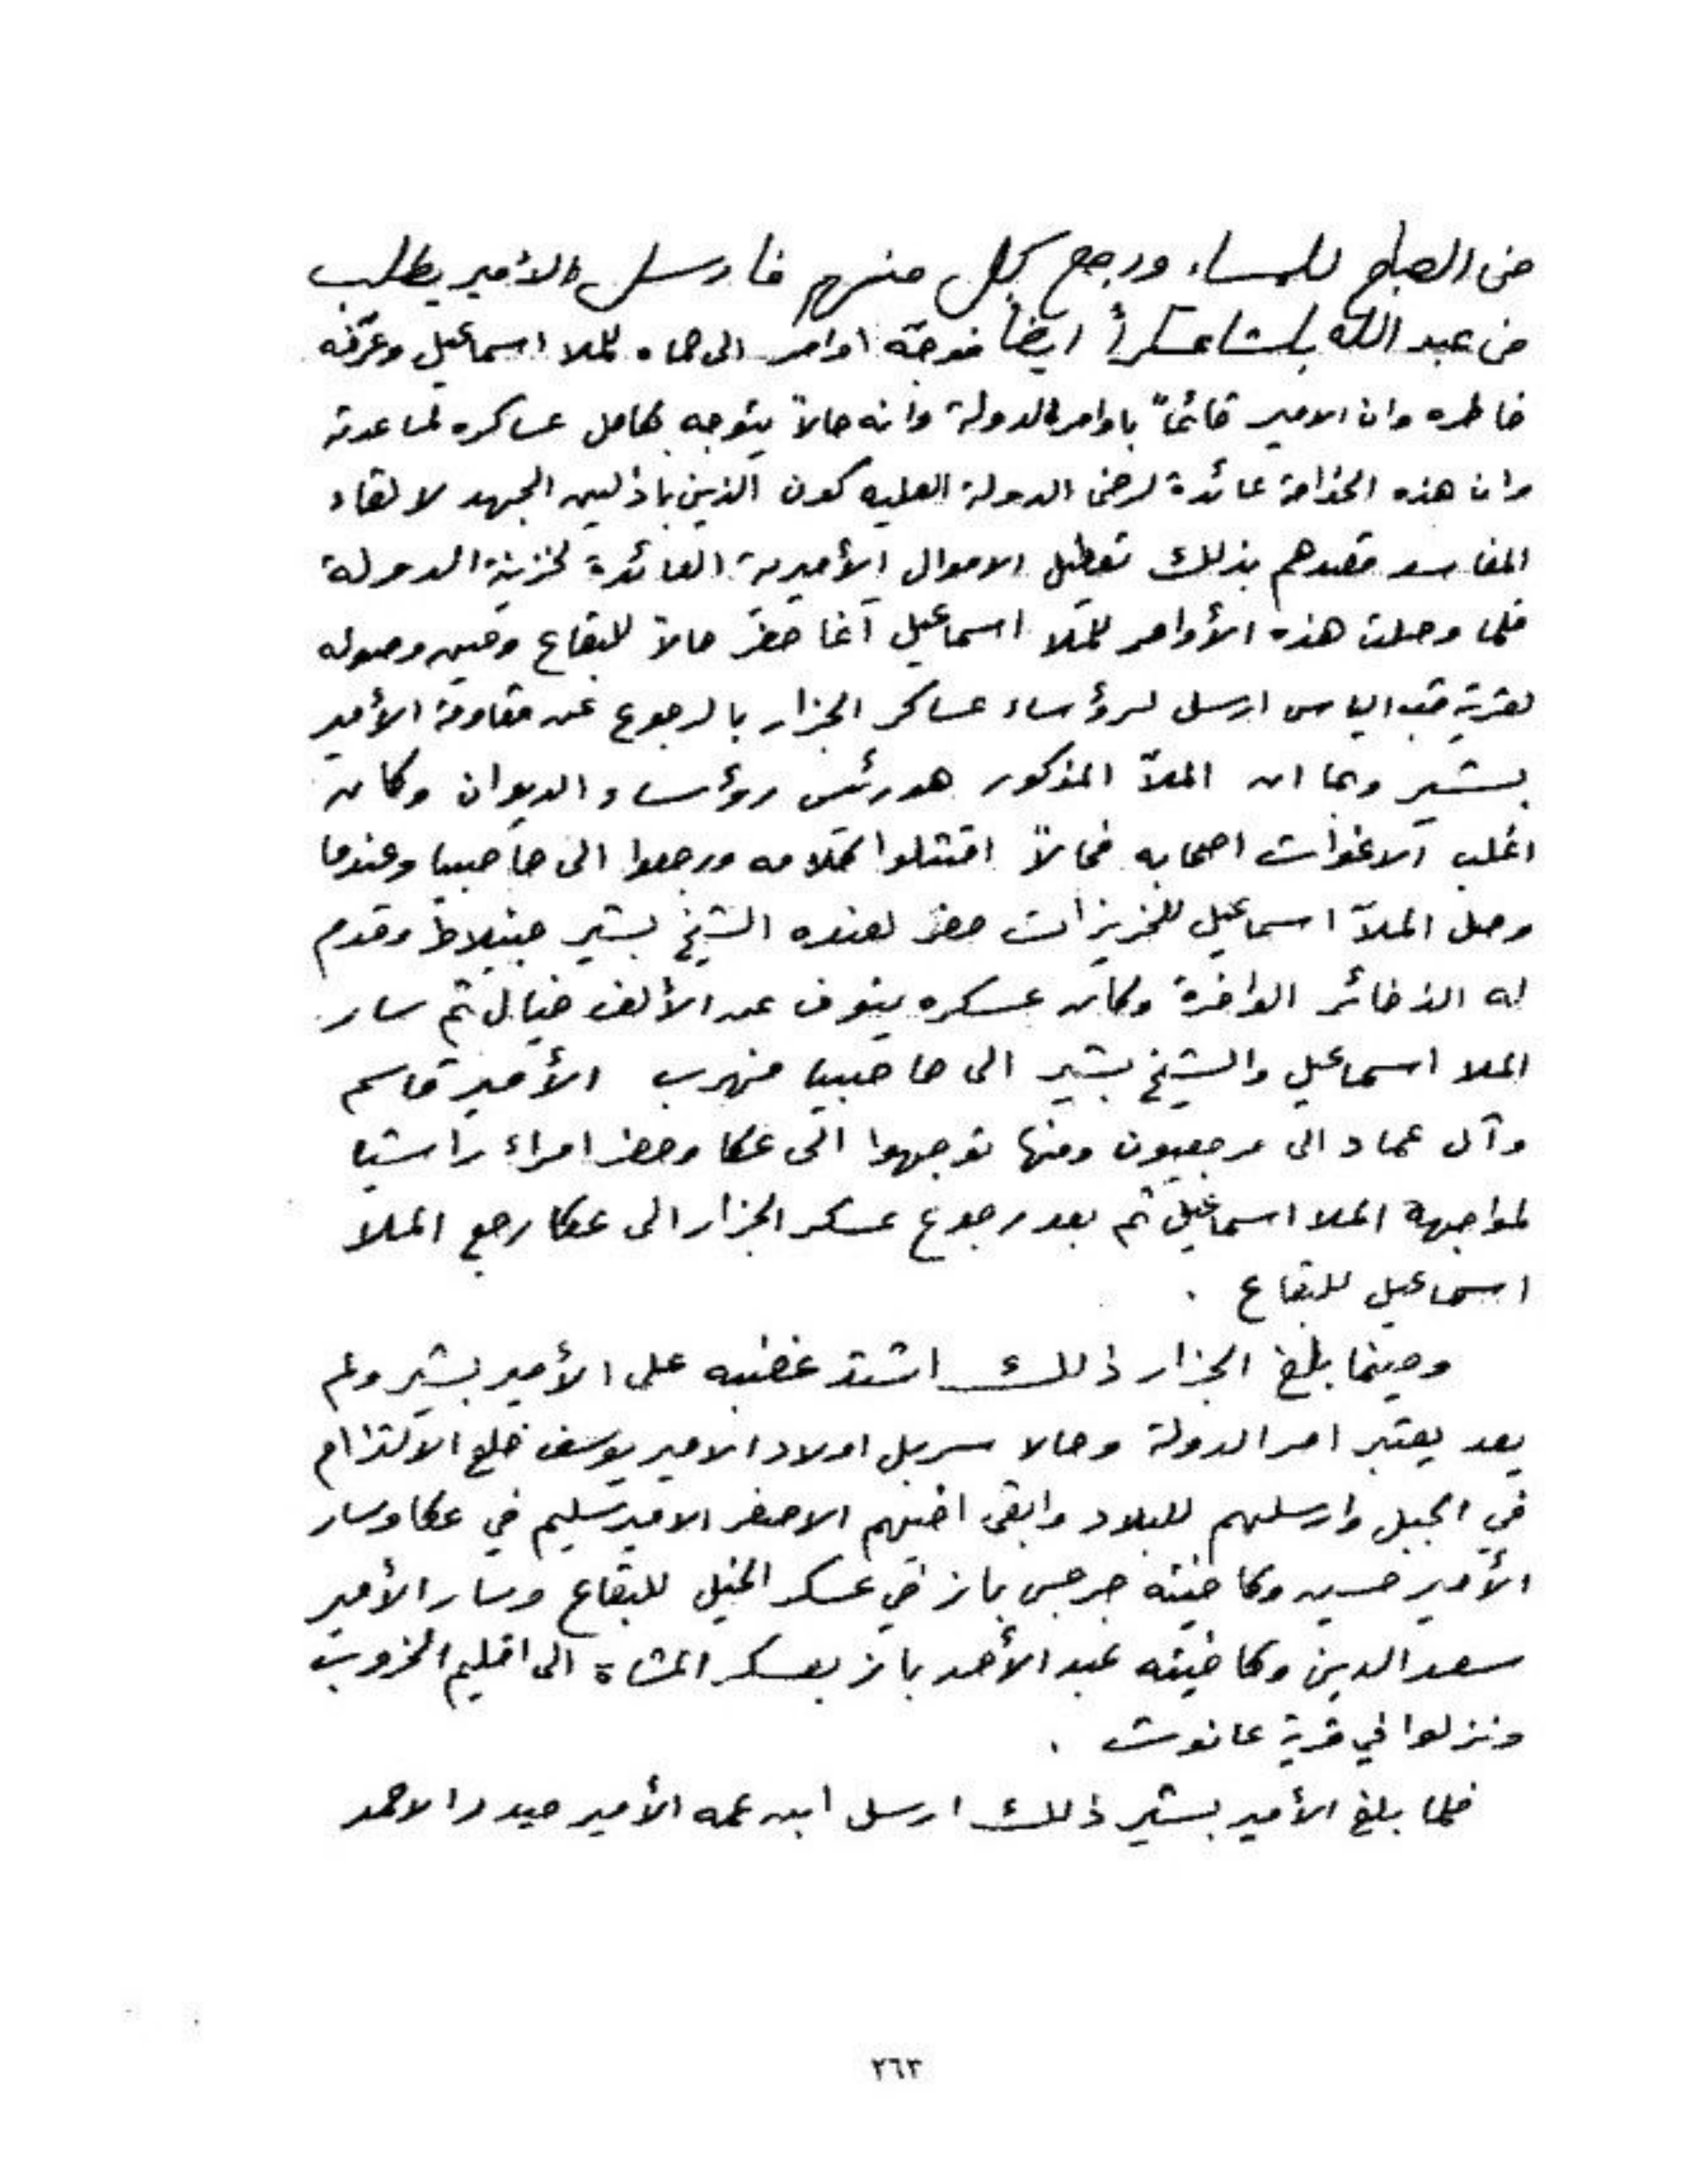 من الصباح للمساء ورجع كل منهم فارسل الأمير يطلب
من عبد الله باشا عسكراً ايضاً فوجّه اوامر الى حماه للملا اسماعيل وعرّفه
خاطره وان الامير قائماً باوامر الدولة وانه حالاً يتوجه بكامل عساكره لمساعدته
وان هذه الخدامة عائدة لرضى الدولة العليه كون الذين باذلين الجهد لالقاء
المفاسد قصدهم بذلك تعطيل الاموال الأميرية العائدة لخزينة الدولة
فلما وصلت هذه الأوامر للملا اسماعيل آغا حضر حالاً للبقاع وحين وصوله
لقرية قب الياس ارسل لرؤساء عساكر الجزار بالرجوع عن مقاومة الأمير
بشير وبما ان الملاّ المذكور هو رئيس رؤساء الديوان وكان
اغلب الاغوات اصحابه فحالاً امتثلوا كلامه ورجعوا الى حاصبيا وعندما
وصل الملاّ اسماعيل للخريزات حضر لعنده الشيخ بشير جنبلاط وقدم
له الذخائر الوافرة وكان عسكره ينوف عن الألف خيال ثم سار
الملا اسماعيل والشيخ بشير الى حاصبيا فهرب الأمير قاسم
وآل عماد الى مرجعيون ومنها توجهوا الى عكا وحضر امراء راشيا
لمواجهة الملا اسماعيل ثم بعد رجوع عسكر الجزار الى عكا رجع الملا
اسماعيل للبقاع .
وحينما بلغ الجزار ذلك اشتد غضبه على الأمير بشير ولم
يعد يعتبر امر الدولة وحالا سربل اولاد الامير يوسف خلع الالتزام
في الجبل وارسلهم للبلاد وابقى اخيهم الاصغر الامير سليم في عكا وسار
الأمير حسين وكاخيته جرجس باز في عسكر الخيل للبقاع وسار الأمير
سعد الدين وكاخيته عبد الأحد باز بعسكر المشاة الى اقليم الخروب
ونزلوا في قرية عانوت .
فلما بلغ الأمير بشير ذلك ارسل ابن عمه الأمير حيدر الاحمد
٢٦٣